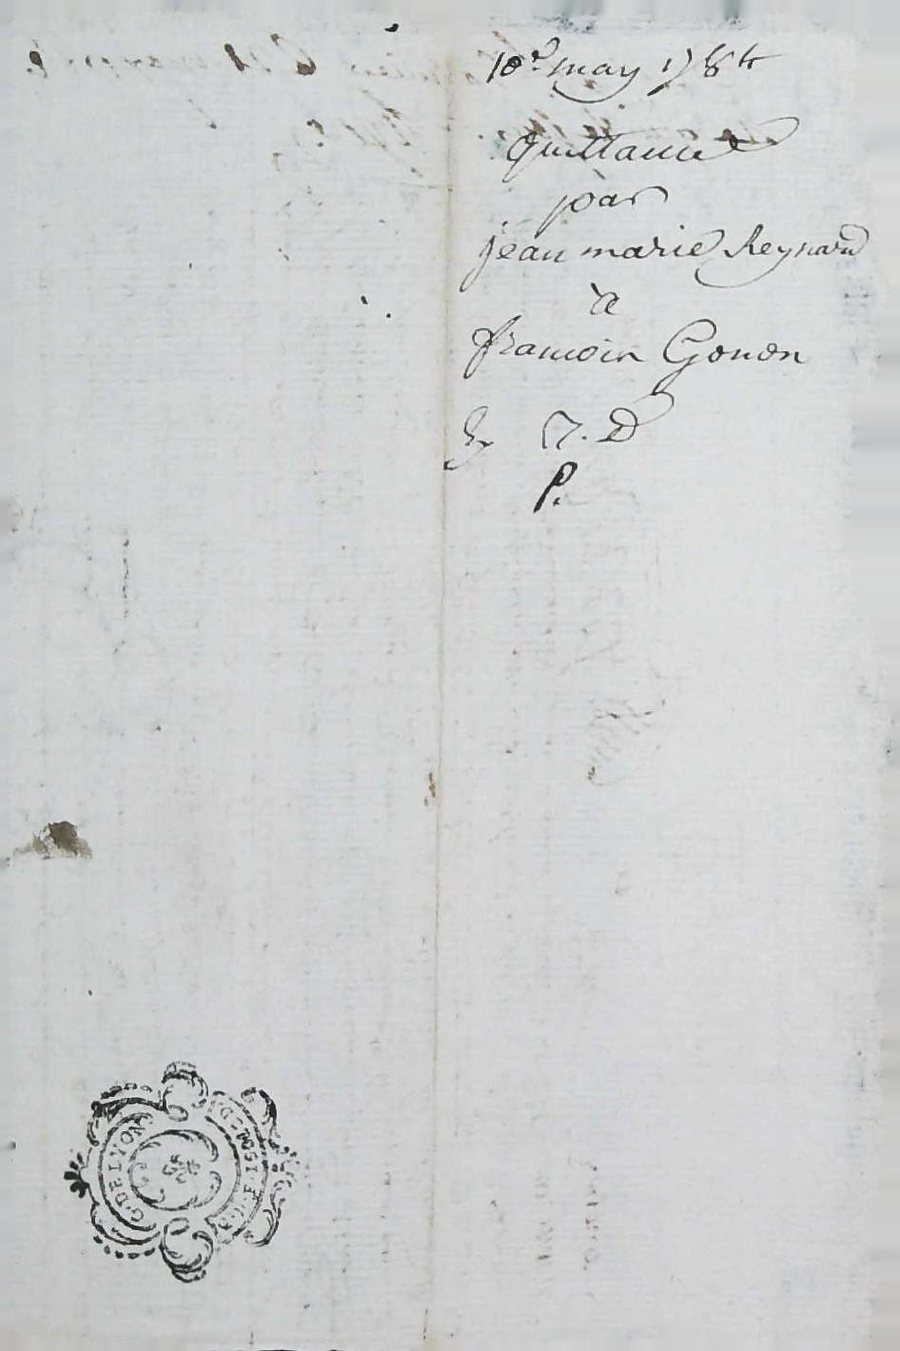 10e may 1784
quittance
par
jean marie Reynard
à
francois Gonon
P.
G. DE LYON